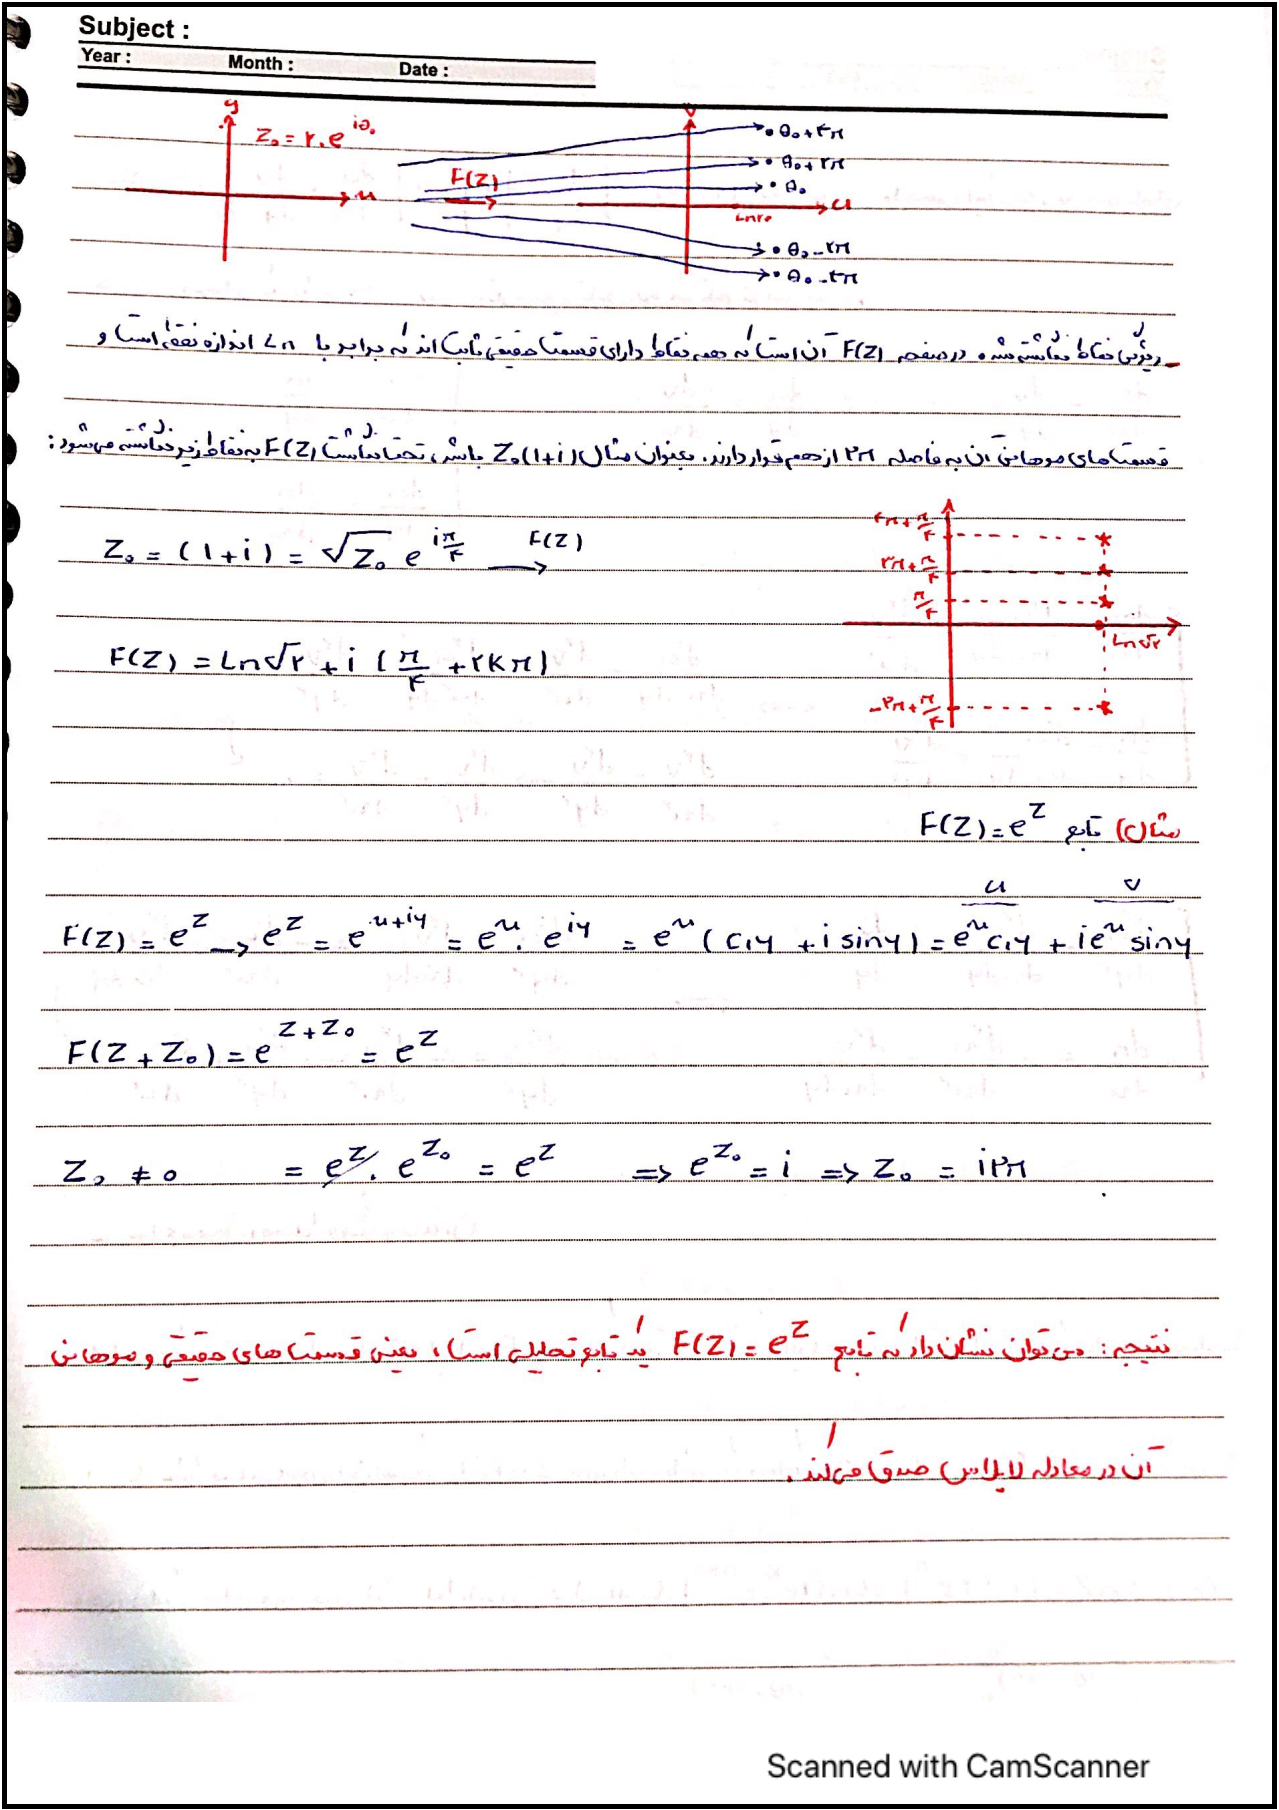 Subject :
Year : Month : Date :
y
Z₀ = r₀ e^{iθ₀}
x
F(Z)
v
θ₀+۴π
θ₀+۲π
θ₀
u
Lnr₀
θ₀-۲π
θ₀-۴π
ویژگی نقاط نگاشته شده در صفحه F(Z) آن است که همه نقاط دارای قسمت حقیقی ثابت اند که برابر با Ln اندازه نقطه است و
قسمت های موهومی آن به فاصله ۲π از هم قرار دارند. بعنوان مثال Z₀(1+i) باشد، تحت نگاشت F(Z) به نقاط زیر نگاشته می شود:
Z₀ = (1+i) = √Z₀ e^{iπ/۴} → F(Z)
F(Z) = Ln√۲ + i (π/۴ + ۲Kπ)
۴π+π/۴
۲π+π/۴
π/۴
Ln√۲
-۲π+π/۴
مثال) تابع F(Z)=e^Z
u v
F(Z) = e^Z → e^Z = e^{x+iy} = e^x . e^{iy} = e^x (cosy + i siny) = e^x cosy + ie^x siny
F(Z+Z₀) = e^{Z+Z₀} = e^Z
Z₀ ≠ 0 = e^Z . e^{Z₀} = e^Z => e^{Z₀} = i => Z₀ = i۲π
نتیجه : می توان نشان داد که تابع F(Z) = e^Z یک تابع تحلیلی است، یعنی قسمت های حقیقی و موهومی
آن در معادله لاپلاس صدق می کند.
Scanned with CamScanner